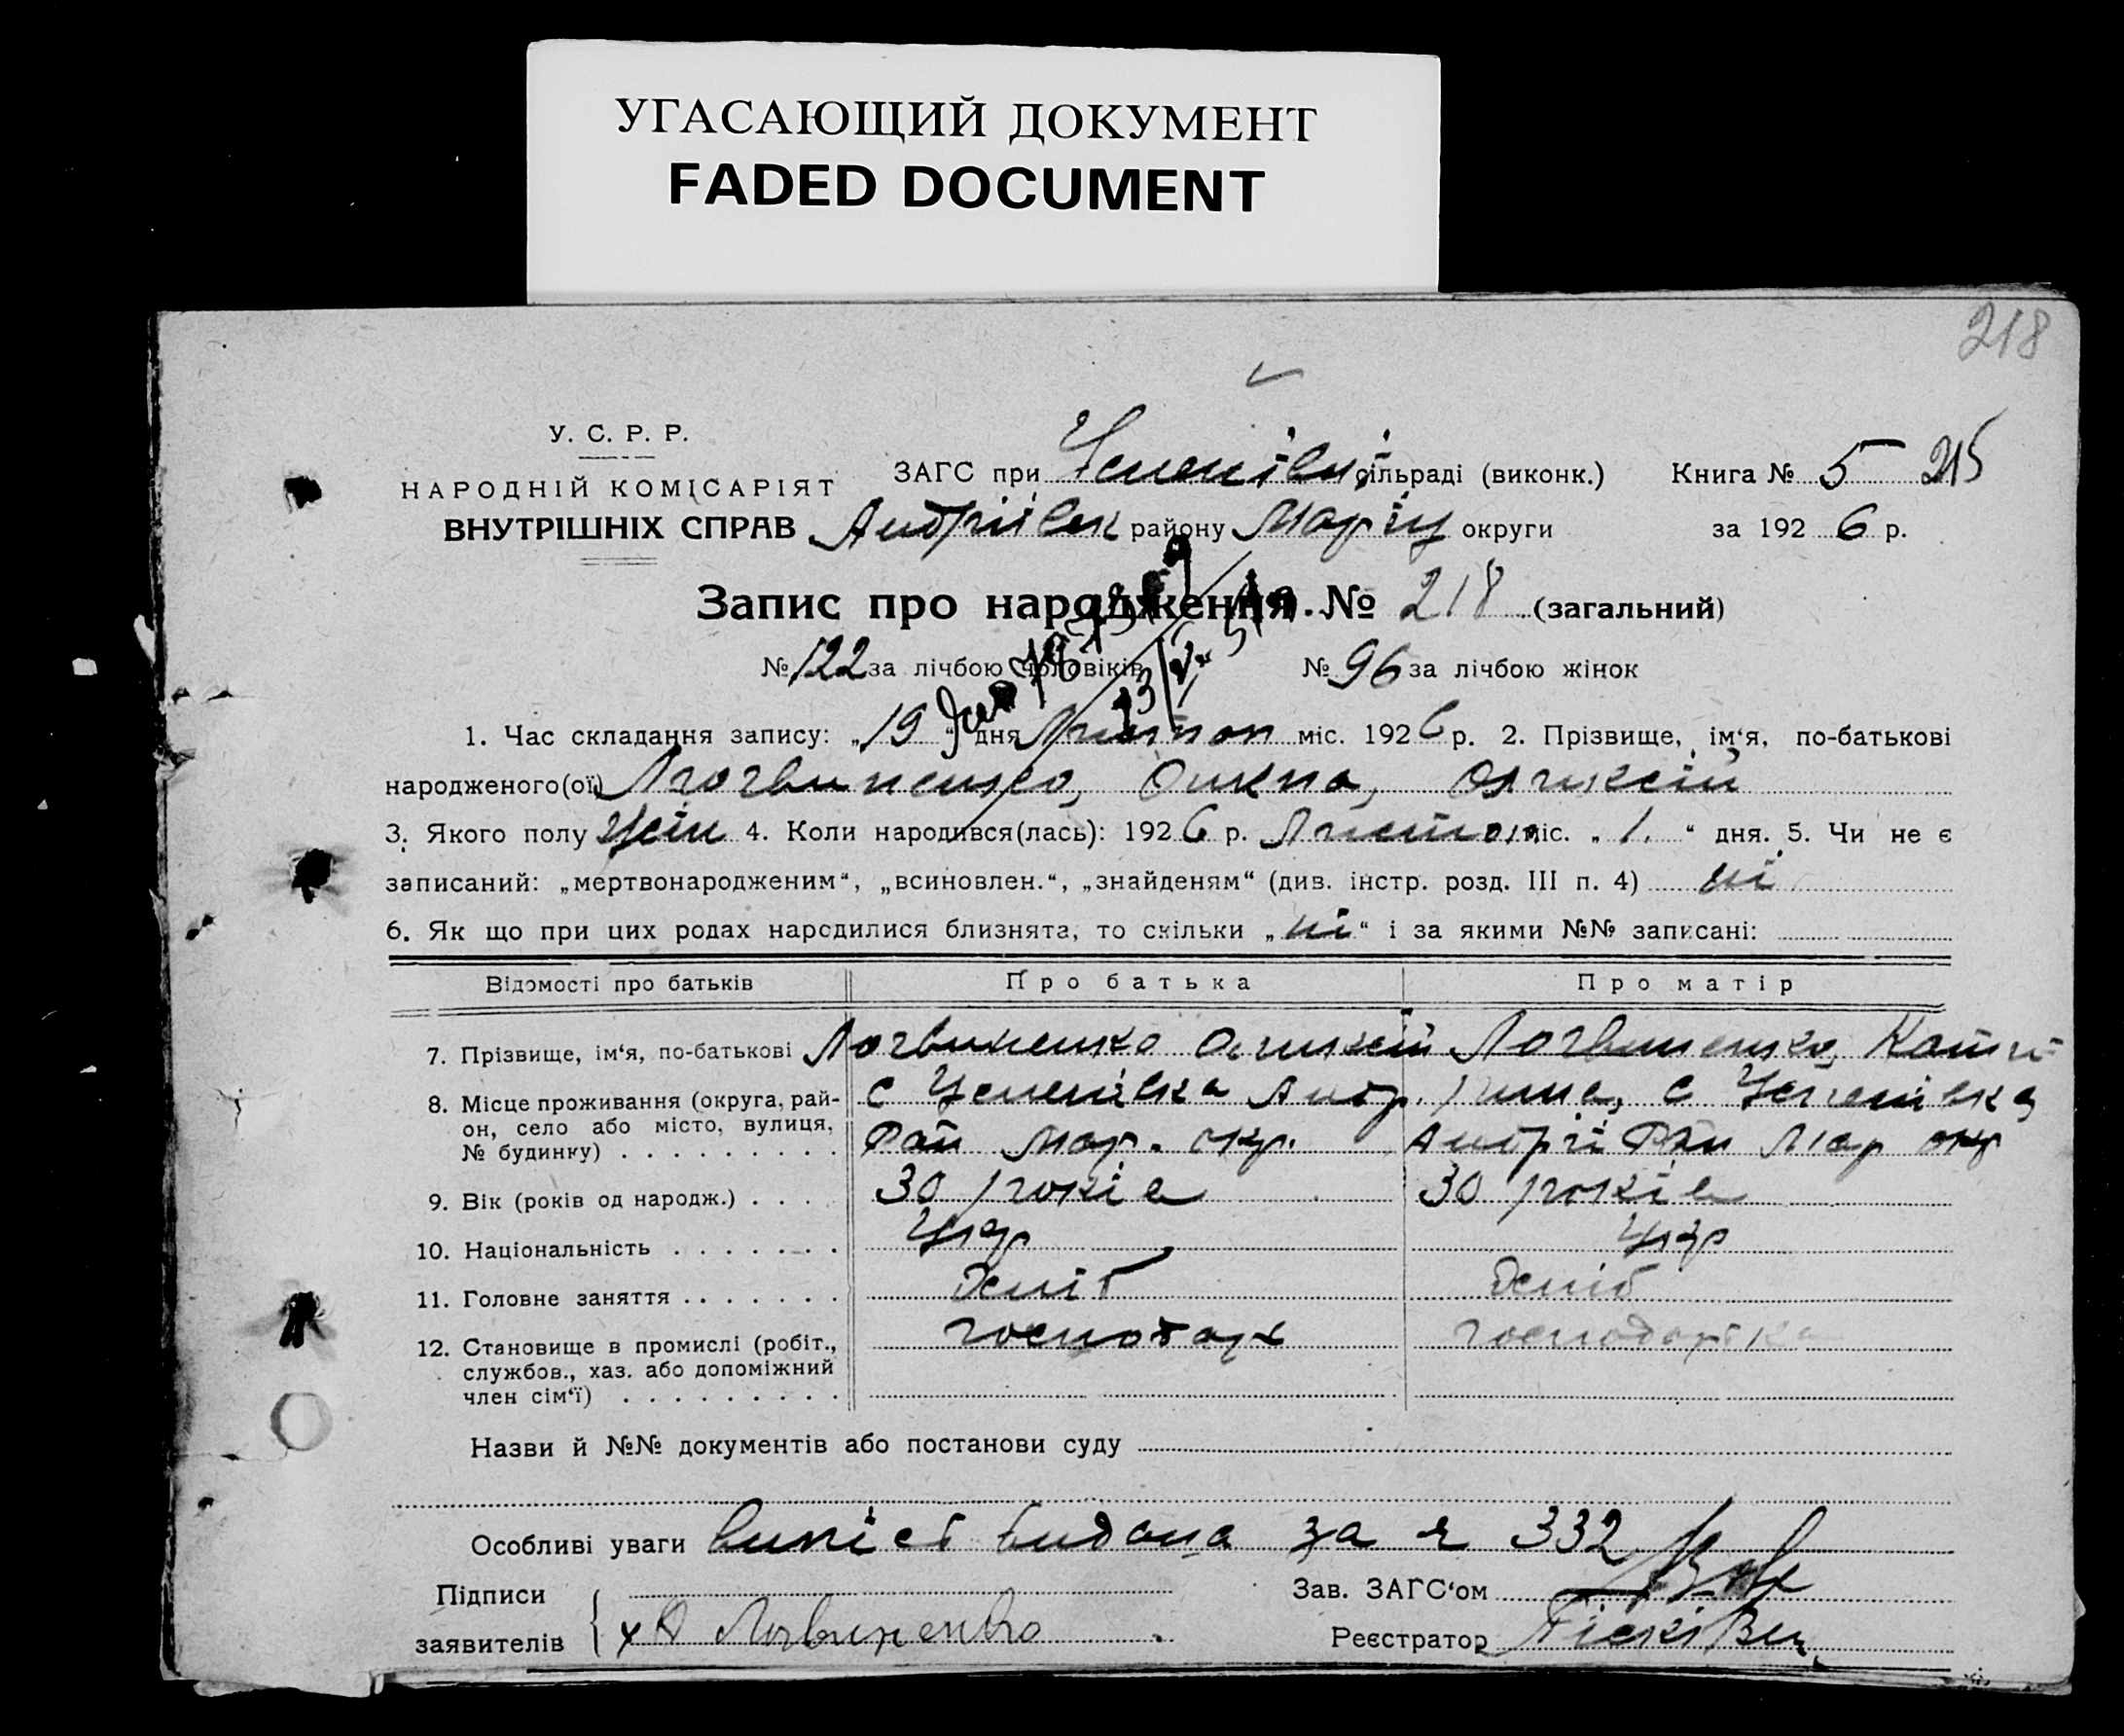 УГАСАЮЩИЙ ДОКУМЕНТ
FADED DOCUMENT
218
У. С. Р. Р.
НАРОДНІЙ КОМІСАРІЯТ
ВНУТРІШНІХ СПРАВ
ЗАГС при Успенівкі сільраді (виконк.) Книга № 5 215
Андріївск району Маріу округи за 1926 р.
Запис про народження № 218 (загальний)
№ 122 за лічбою чоловіків № 96 за лічбою жінок
1. Час складання запису: „19“ дня Листоп міс. 1926 р. 2. Прізвище, ім‘я, по-батькові
народженого(ої) Логвиненко,
3. Якого полу Жін 4. Коли народився(лась): 1926 р. Листоп міс. „1.“ дня. 5. Чи не є
записаний: „мертвонародженим“, „всиновлен.“, „знайденям“ (див. інстр. розд. III п. 4) ні
6. Як що при цих родах народилися близнята, то скільки „ні“ і за якими №№ записані:
Відомості про батьків Про батька Про матір
7. Прізвище, ім‘я, по-батькові Логвиненко Оликсій Логвиненко, Кати-
8. Місце проживання (округа, рай- с Успенівка Андр. рина, с Успенівка
он, село або місто, вулиця, Рай Мар. окр. Андрії Рай Мар окр
№ будинку)
9. Вік (років од народж.) 30 років 30 років
10. Національність Укр Укр
11. Головне заняття хліб хліб
12. Становище в промислі (робіт., господарь господарька
службов., хаз. або допоміжний
член сім‘ї)
Назви й №№ документів або постанови суду
Особливі уваги випісь видана за № 332
Підписи Зав. ЗАГС‘ом
заявителів х А Логвиненко Реєстратор